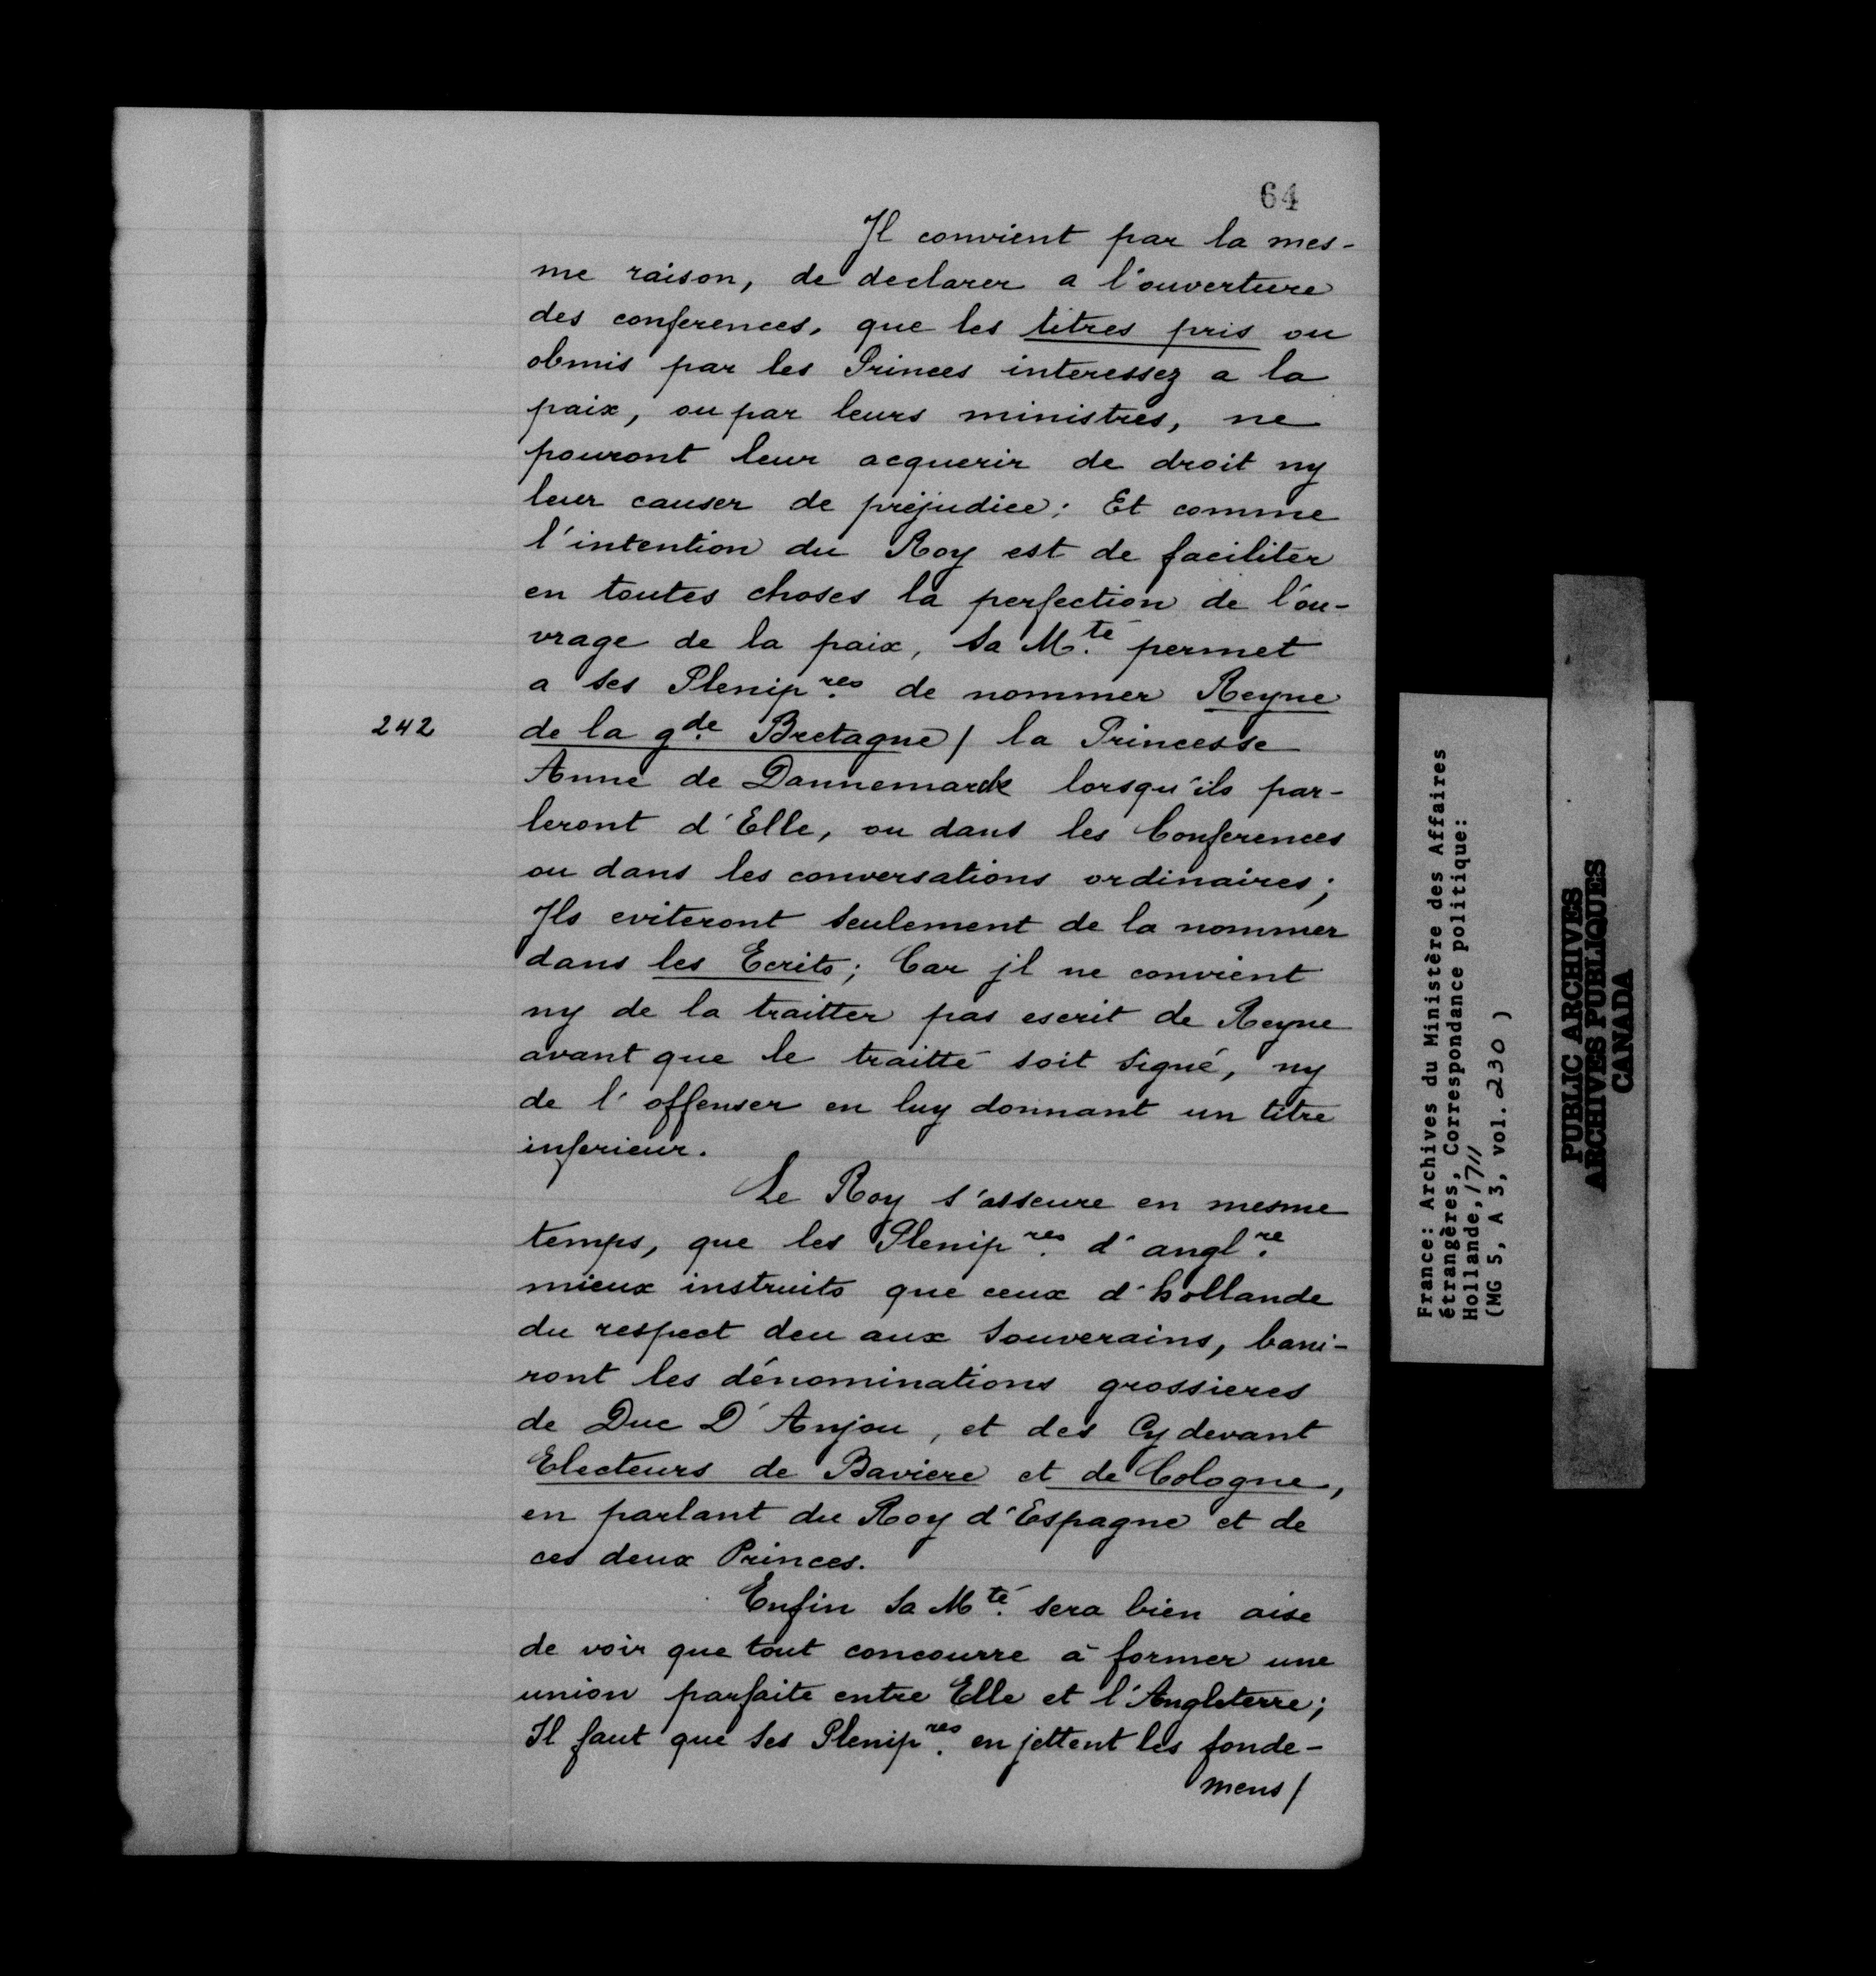 64
Il convient par la mes-
me raison, de declarer a l'ouverture
des conferences, que les titres pris ou
obmis par les Princes interessez a la
paix, ou par leurs ministres, ne
pouront leur acquerir de droit ny
leur causer de préjudice: Et comme
l'intention du Roy est de faciliter
en toutes choses la perfection de l'ou-
vrage de la paix, Sa M.té permet
a ses Plenip.res de nommer Reyne
242
de la g.de Bretagne / la Princesse
Anne de Dannemarck lorsqu'ils par-
leront d'Elle, ou dans les Conferences
ou dans les conversations ordinaires;
Ils eviteront seulement de la nommer
dans les Ecrits; Car jl ne convient
ny de la traitter pas escrit de Reyne
avant que le traitté soit signé, ny
de l'offenser en luy donnant un titre
inferieur.
Le Roy s'asseure en mesme
temps, que les Plenip.res d'angl.re
mieux instruits que ceux d'hollande
du respect deu aux Souverains, bani-
ront les dénominations grossieres
de Duc D'Anjou, et des Cy devant
Electeurs de Baviere et de Cologne,
en parlant du Roy d'Espagne et de
ces deux Princes.
Enfin Sa M.té sera bien aise
de voir que tout concourre à former une
union parfaite entre Elle et l'Angleterre;
Il faut que ses Plenip.res en jettent les fonde-
mens /
France: Archives du Ministère des Affaires
étrangères, Correspondance politique:
Hollande, 1711
(MG 5, A 3, vol. 230 )
PUBLIC ARCHIVES
ARCHIVES PUBLIQUES
CANADA